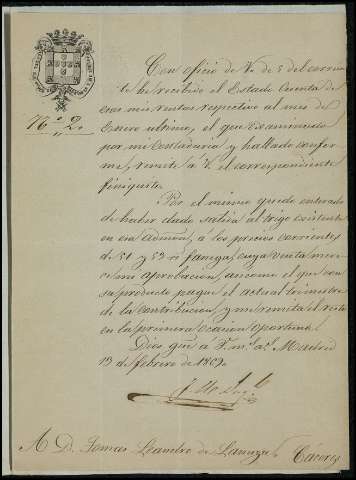 Nº 2.
Con oficio de V. de 5 del corrien
te he recibido el Estado Cuenta de
esas mis rentas respectivo al mes de
Enero ultimo, el que examinado
por mi Contaduria y hallado confor
me, remito a V. el correspondiente
finiquito.
Por el mismo quedo enterado
de haber dado salida al trigo existente
en esa admon, á los precios corrientes
de 51 y 52 rs fanega, cuya venta mere
ce mi aprobacion, asi como el que con
su producto pague el actual trimestre
de la contribucion, y me remita el resto
en la primera ocasion oportuna.
Dios gue á V. ms as Madrid
13 de febrero de 1869.
A D. Tomas Leandro de
Cáceres